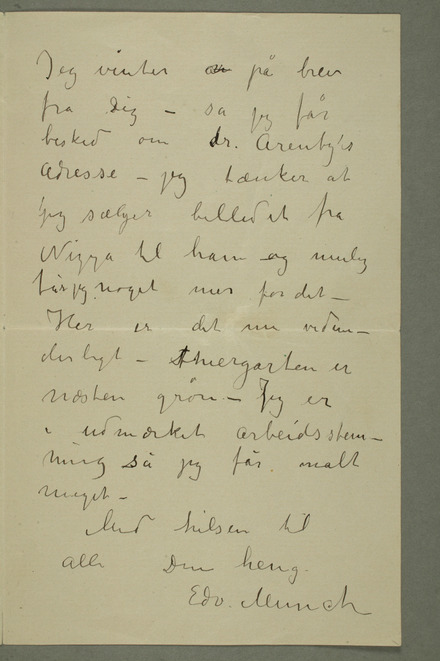 Jeg venter på brev
fra Dig – så jeg får
besked om dr. Arentz's
Adresse – jeg tænker at
jeg sælger billedet fra
Nizza til ham og mulig
får jeg noget mer for det –
Her er det nu vidun–
derligt – Thiergarten er
næsten grøn – Jeg er
i udmærket arbeidsstem–
ning så jeg får malt
meget –
Med hilsen til
alle Din heng.
Edv. Munch